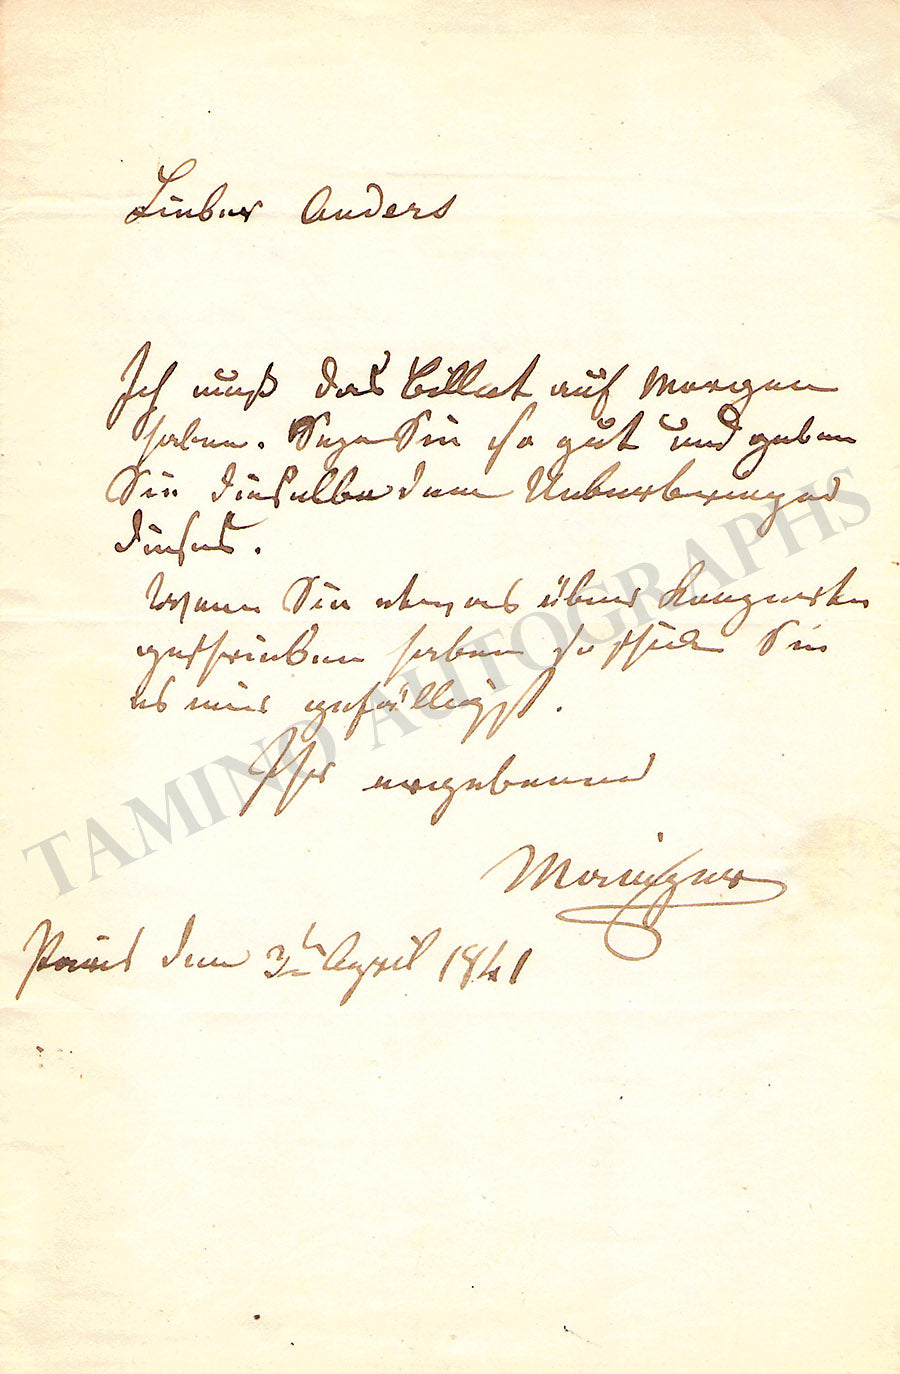 Lieber Anders
Ich muß das Billet auf Morgen
haben. Seyen Sie so gut und geben
Sie dieselbe dem Ueberbringer
dieses.
Wenn Sie etwas über Konzerte
geschrieben haben so schicken Sie
es mir gefälligst.
Ihr ergebener
Paris den 3ten April 1841
TAMINO AUTOGRAPHS